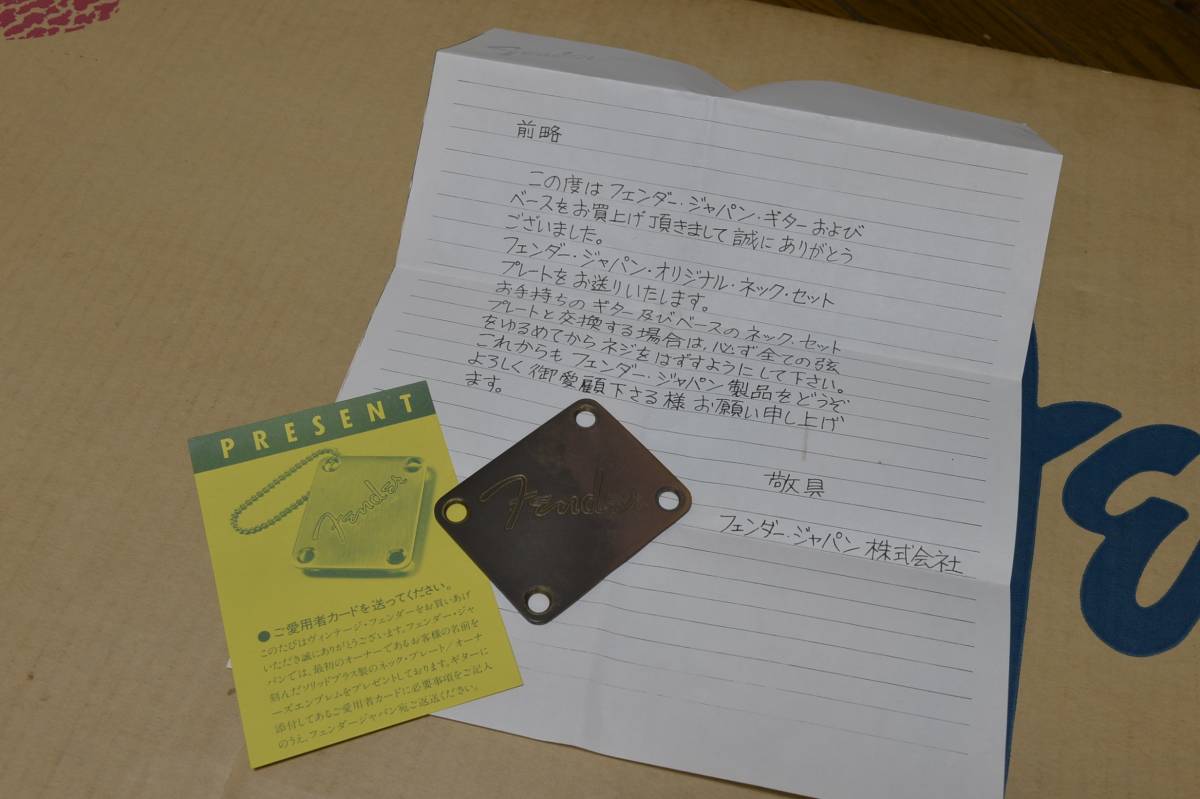 Fender
前略
この度はフェンダー・ジャパン・ギターおよび
ベースをお買上げ頂きまして誠にありがとう
ございました。
フェンダー・ジャパン・オリジナル・ネック・セット
プレートをお送りいたします。
お手持ちのギター及びベースのネック・セット
プレートと交換する場合は、必ず全ての弦
をゆるめてからネジをはずすようにして下さい。
これからもフェンダー・ジャパン製品をどうぞ
よろしく御愛顧下さる様お願い申し上げ
ます。
敬具
フェンダー・ジャパン株式会社
PRESENT
Fender
●ご愛用者カードを送ってください。
このたびはヴィンテージ・フェンダーをお買いあげ
いただき誠にありがとうございます。フェンダー・ジャ
パンでは、最初のオーナーであるお客様の名前を
刻んだソリッドブラス製のネック・プレート/オーナ
ーズエンブレムをプレゼントしております。ギターに
添付してあるご愛用者カードに必要事項をご記入
のうえ、フェンダージャパン宛ご返送ください。
Fender